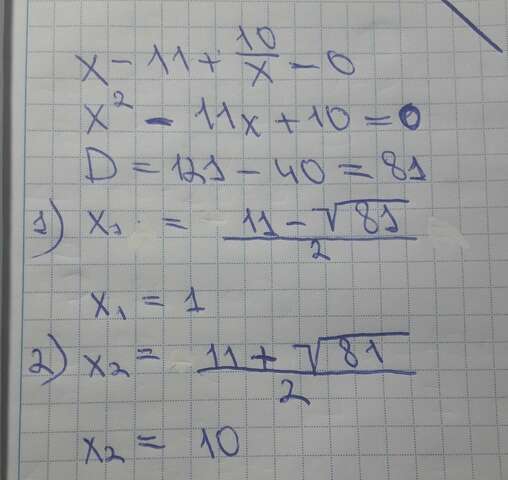 x - 11 + 10/x - 0
x² - 11x + 10 = 0
D = 121 - 40 = 81
1) x₁ = (11 - √81)/2
x₁ = 1
2) x₂ = (11 + √81)/2
x₂ = 10